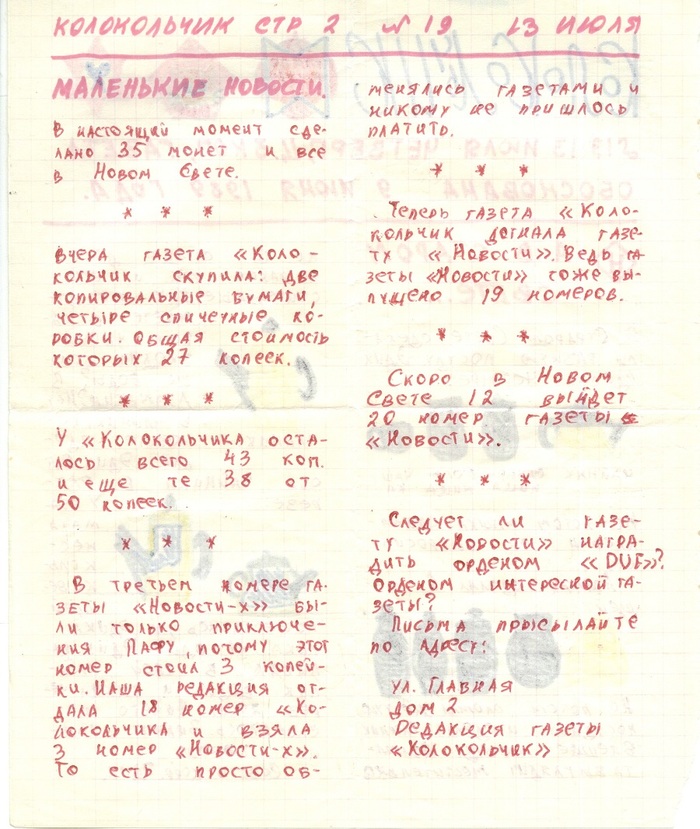 КОЛОКОЛЬЧИК СТР 2 № 19 13 ИЮЛЯ
МАЛЕНЬКИЕ НОВОСТИ.
В НАСТОЯЩИЙ МОМЕНТ СДЕ-
ЛАНО 35 МОНЕТ И ВСЕ
В НОВОМ СВЕТЕ.
* * *
ВЧЕРА ГАЗЕТА «КОЛО-
КОЛЬЧИК СКУПИЛА: ДВЕ
КОПИРОВАЛЬНЫЕ БУМАГИ,
ЧЕТЫРЕ СПИЧЕЧНЫЕ КО-
РОБКИ. ОБЩАЯ СТОИМОСТЬ
КОТОРЫХ 27 КОПЕЕК.
* * *
У «КОЛОКОЛЬЧИКА ОСТА-
ЛОСЬ ВСЕГО 43 КОП.
И ЕЩЕ ТЕ 38 ОТ
50 КОПЕЕК.
* * *
В ТРЕТЬЕМ НОМЕРЕ ГА-
ЗЕТЫ «НОВОСТИ-Х» БЫ-
ЛИ ТОЛЬКО ПРИКЛЮЧЕ-
НИЯ ПАФУ, ПОЧОМУ ЭТОТ
НОМЕР СТОИЛ 3 КОПЕЙ-
КИ. НАША РЕДАКЦИЯ ОТ-
ДАЛА 18 НОМЕР «КО-
ЛОКОЛЬЧИКА И ВЗЯЛА
3 НОМЕР «НОВОСТИ-Х».
ТО ЕСТЬ ПРОСТО ОБ-
МЕНЯЛИСЬ ГАЗЕТАМИ И
НИКОМУ НЕ ПРИШЛОСЬ
ПЛАТИТЬ.
* * *
ТЕПЕРЬ ГАЗЕТА «КОЛО-
КОЛЬЧИК ДОГНАЛА ГАЗЕ-
ТУ «НОВОСТИ». ВЕДЬ ГА-
ЗЕТЫ «НОВОСТИ» ТОЖЕ ВЫ-
ПУЩЕНО 19 НОМЕРОВ.
* * *
СКОРО В НОВОМ
СВЕТЕ 12 ВЫЙДЕТ
20 НОМЕР ГАЗЕТЫ
«НОВОСТИ».
* * *
СЛЕДУЕТ ЛИ ГАЗЕ-
ТУ «НОВОСТИ» НАГРА-
ДИТЬ ОРДЕНОМ «DUF»?
ОРДЕНОМ ИНТЕРЕСНОЙ ГА-
ЗЕТЫ?
ПИСЬМА ПРЫСЫЛАЙТЕ
ПО АДРЕСУ:
УЛ. ГЛАВНАЯ
ДОМ 2
РЕДАКЦИЯ ГАЗЕТЫ
«КОЛОКОЛЬЧИК»